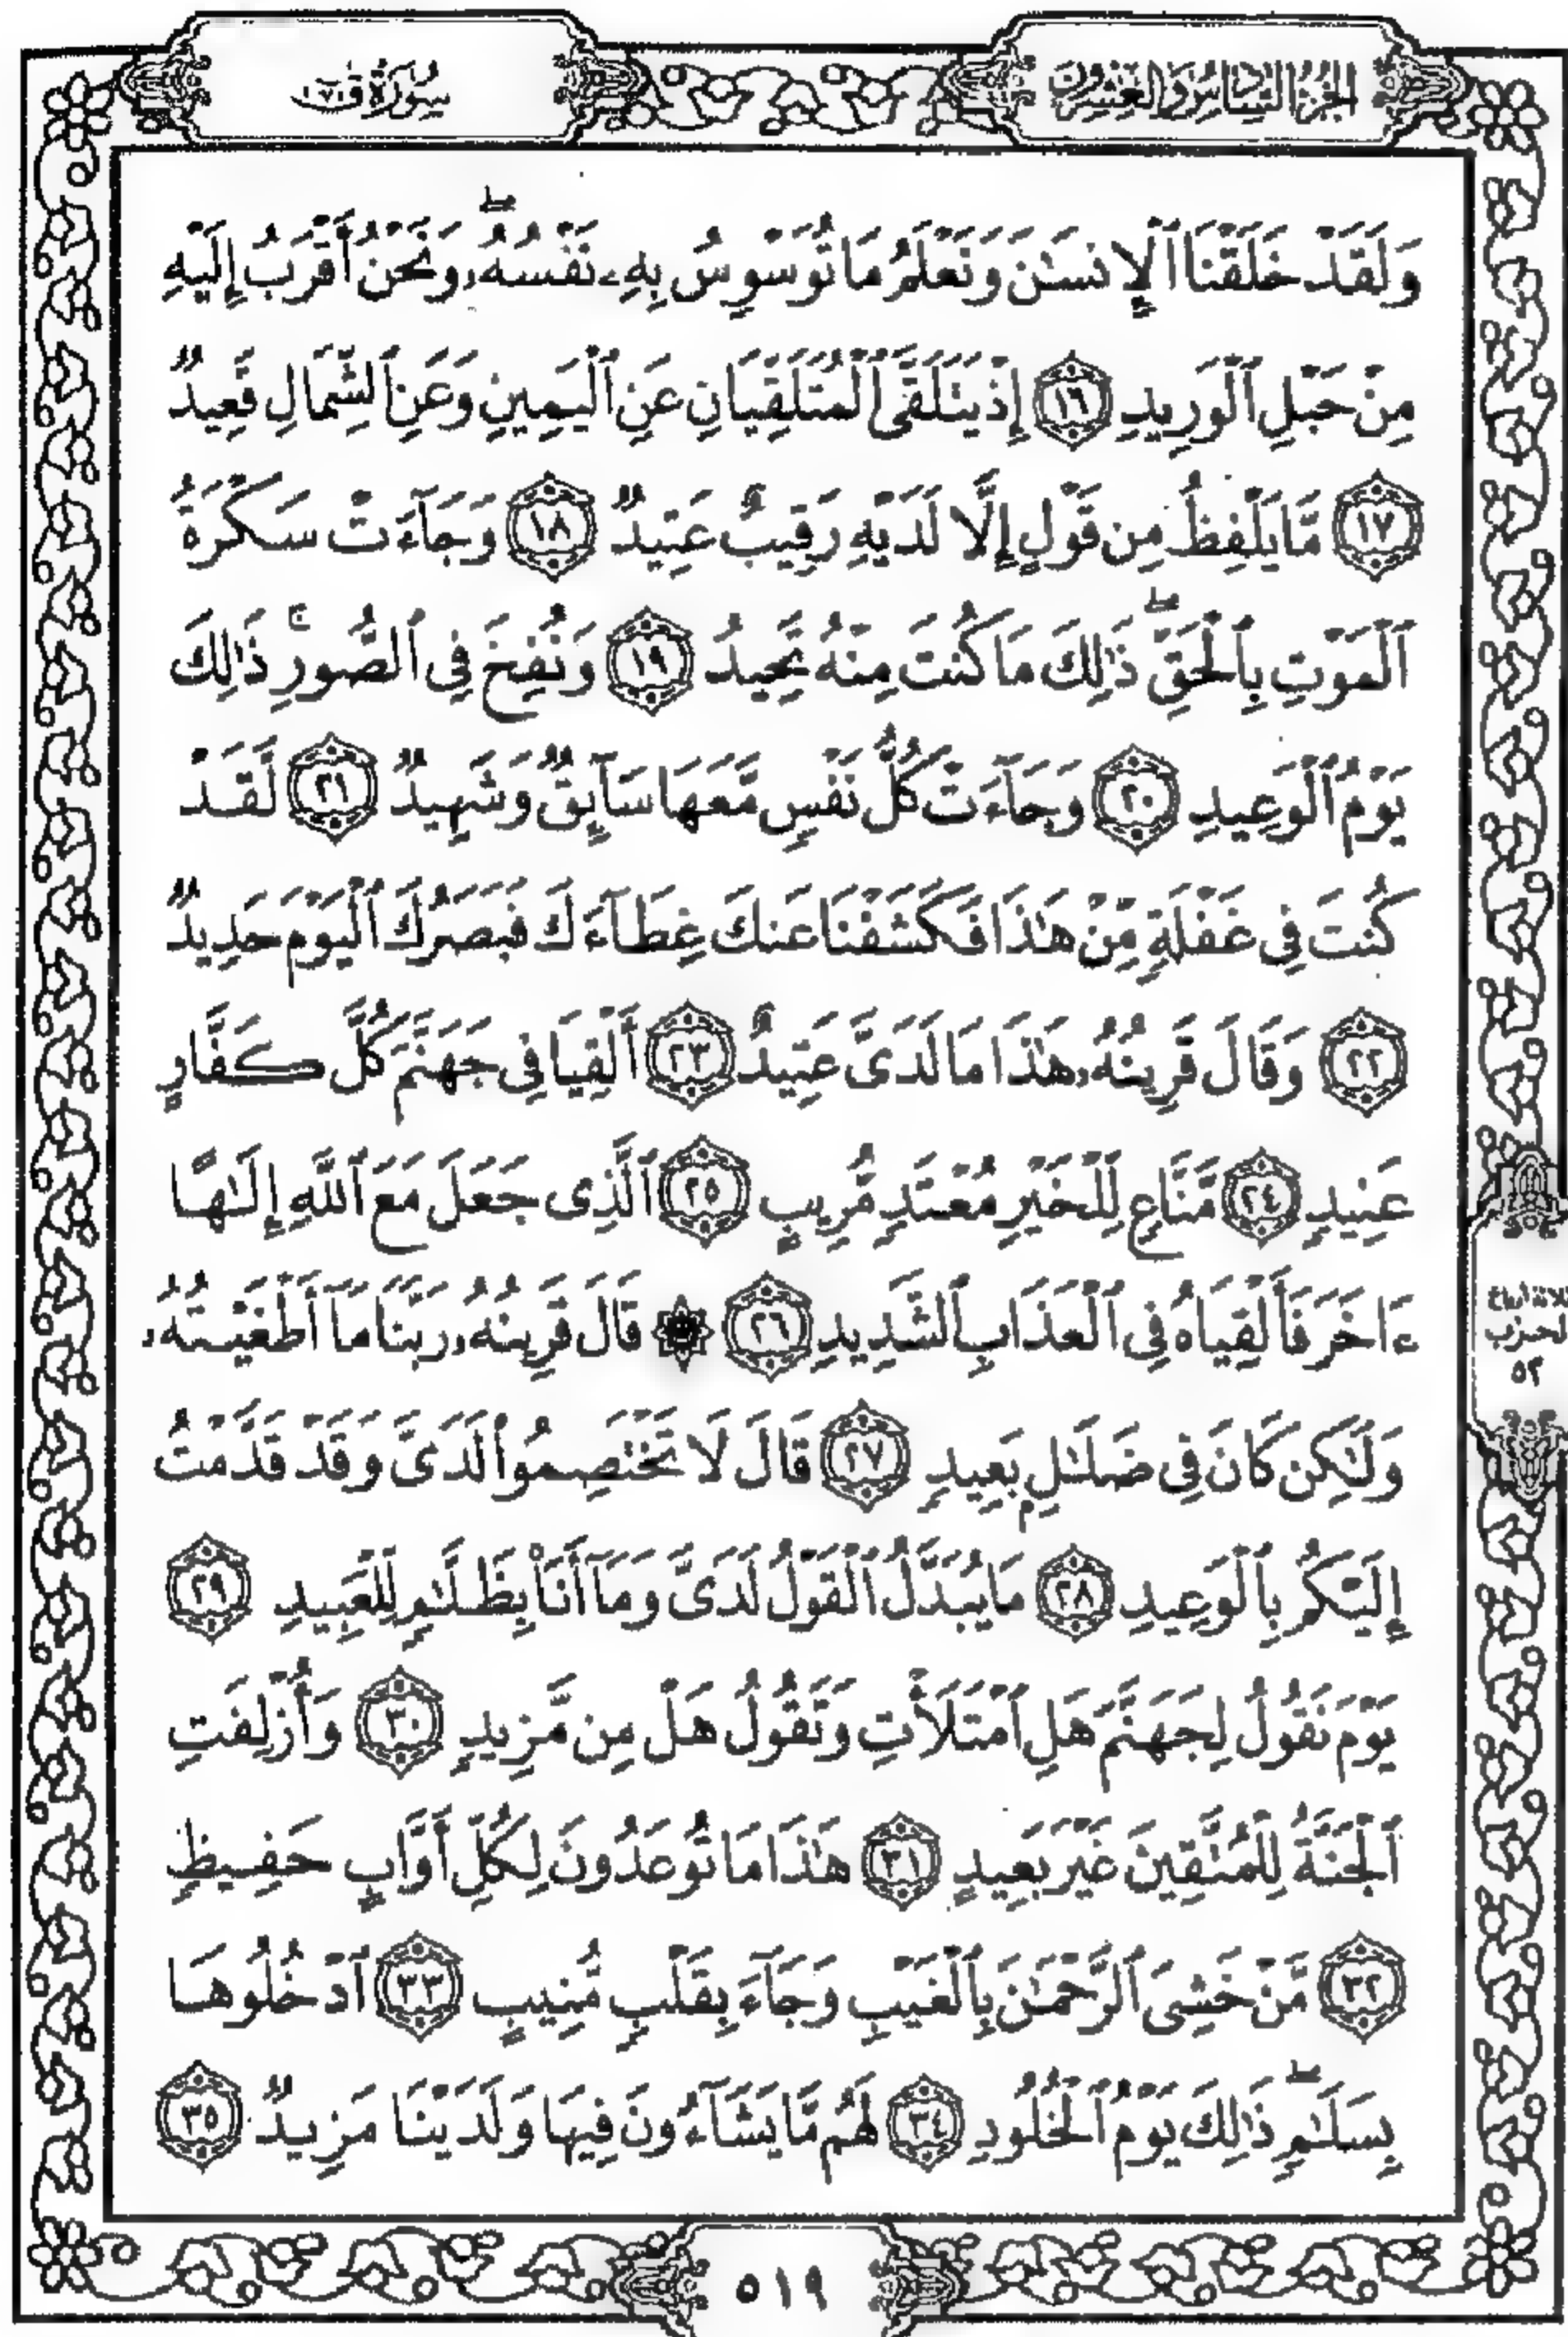 الجزء السادس والعشرون
سورة ق
وَلَقَدْ خَلَقْنَا ٱلْإِنسَٰنَ وَنَعْلَمُ مَا تُوَسْوِسُ بِهِۦ نَفْسُهُۥ ۖ وَنَحْنُ أَقْرَبُ إِلَيْهِ
مِنْ حَبْلِ ٱلْوَرِيدِ ١٦ إِذْ يَتَلَقَّى ٱلْمُتَلَقِّيَانِ عَنِ ٱلْيَمِينِ وَعَنِ ٱلشِّمَالِ قَعِيدٌ
١٧ مَّا يَلْفِظُ مِن قَوْلٍ إِلَّا لَدَيْهِ رَقِيبٌ عَتِيدٌ ١٨ وَجَآءَتْ سَكْرَةُ
ٱلْمَوْتِ بِٱلْحَقِّ ۖ ذَٰلِكَ مَا كُنتَ مِنْهُ تَحِيدُ ١٩ وَنُفِخَ فِى ٱلصُّورِ ۚ ذَٰلِكَ
يَوْمُ ٱلْوَعِيدِ ٢٠ وَجَآءَتْ كُلُّ نَفْسٍ مَّعَهَا سَآئِقٌ وَشَهِيدٌ ٢١ لَّقَدْ
كُنتَ فِى غَفْلَةٍ مِّنْ هَٰذَا فَكَشَفْنَا عَنكَ غِطَآءَكَ فَبَصَرُكَ ٱلْيَوْمَ حَدِيدٌ
٢٢ وَقَالَ قَرِينُهُۥ هَٰذَا مَا لَدَىَّ عَتِيدٌ ٢٣ أَلْقِيَا فِى جَهَنَّمَ كُلَّ كَفَّارٍ
عَنِيدٍ ٢٤ مَّنَّاعٍ لِّلْخَيْرِ مُعْتَدٍ مُّرِيبٍ ٢٥ ٱلَّذِى جَعَلَ مَعَ ٱللَّهِ إِلَٰهًا
ءَاخَرَ فَأَلْقِيَاهُ فِى ٱلْعَذَابِ ٱلشَّدِيدِ ٢٦ ۞ قَالَ قَرِينُهُۥ رَبَّنَا مَآ أَطْغَيْتُهُۥ
وَلَٰكِن كَانَ فِى ضَلَٰلٍۭ بَعِيدٍ ٢٧ قَالَ لَا تَخْتَصِمُوا۟ لَدَىَّ وَقَدْ قَدَّمْتُ
إِلَيْكُم بِٱلْوَعِيدِ ٢٨ مَا يُبَدَّلُ ٱلْقَوْلُ لَدَىَّ وَمَآ أَنَا۠ بِظَلَّٰمٍ لِّلْعَبِيدِ ٢٩
يَوْمَ نَقُولُ لِجَهَنَّمَ هَلِ ٱمْتَلَأْتِ وَتَقُولُ هَلْ مِن مَّزِيدٍ ٣٠ وَأُزْلِفَتِ
ٱلْجَنَّةُ لِلْمُتَّقِينَ غَيْرَ بَعِيدٍ ٣١ هَٰذَا مَا تُوعَدُونَ لِكُلِّ أَوَّابٍ حَفِيظٍ
٣٢ مَّنْ خَشِىَ ٱلرَّحْمَٰنَ بِٱلْغَيْبِ وَجَآءَ بِقَلْبٍ مُّنِيبٍ ٣٣ ٱدْخُلُوهَا
بِسَلَٰمٍ ۖ ذَٰلِكَ يَوْمُ ٱلْخُلُودِ ٣٤ لَهُم مَّا يَشَآءُونَ فِيهَا وَلَدَيْنَا مَزِيدٌ ٣٥
ثلاثة أرباع
الحزب
٥٢
٥١٩